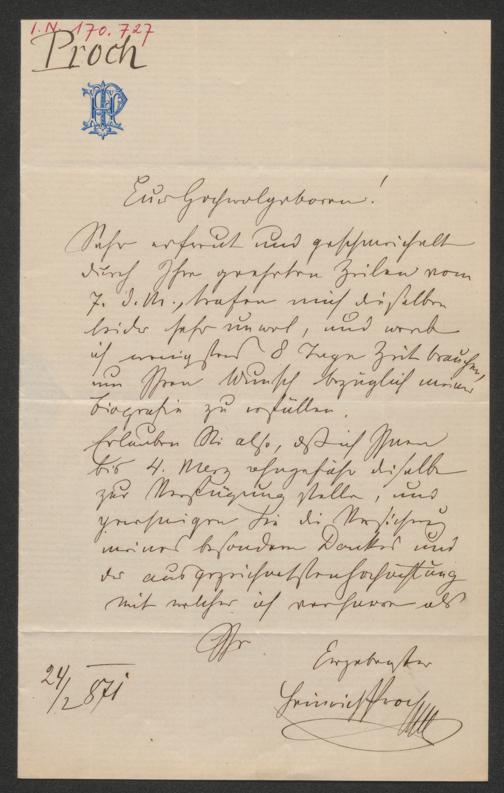 I.N. 170.727
Proch
HP
Eur Hochwolgeboren!
Sehr erfreut und geschmeichelt
durch Ihre geehrten Zeilen vom
7. d. M., trafen mich dieselben
leider sehr unwol, und werde
ich wenigstens 8 Tage Zeit brauchen,
um Ihren Wunsch bezüglich meiner
Biografie zu erfüllen.
Erlauben Sie also, daß ich Ihnen
bis 4. Merz ohngefähr diselbe
zur Verfügung stelle, und
genehmigen Sie die Versicherung
meines besondern Dankes und
der ausgezeichnetsten Hochachtung
mit welcher ich verharre als
Ihr
Ergebenster
Heinrich Proch
24/2 871